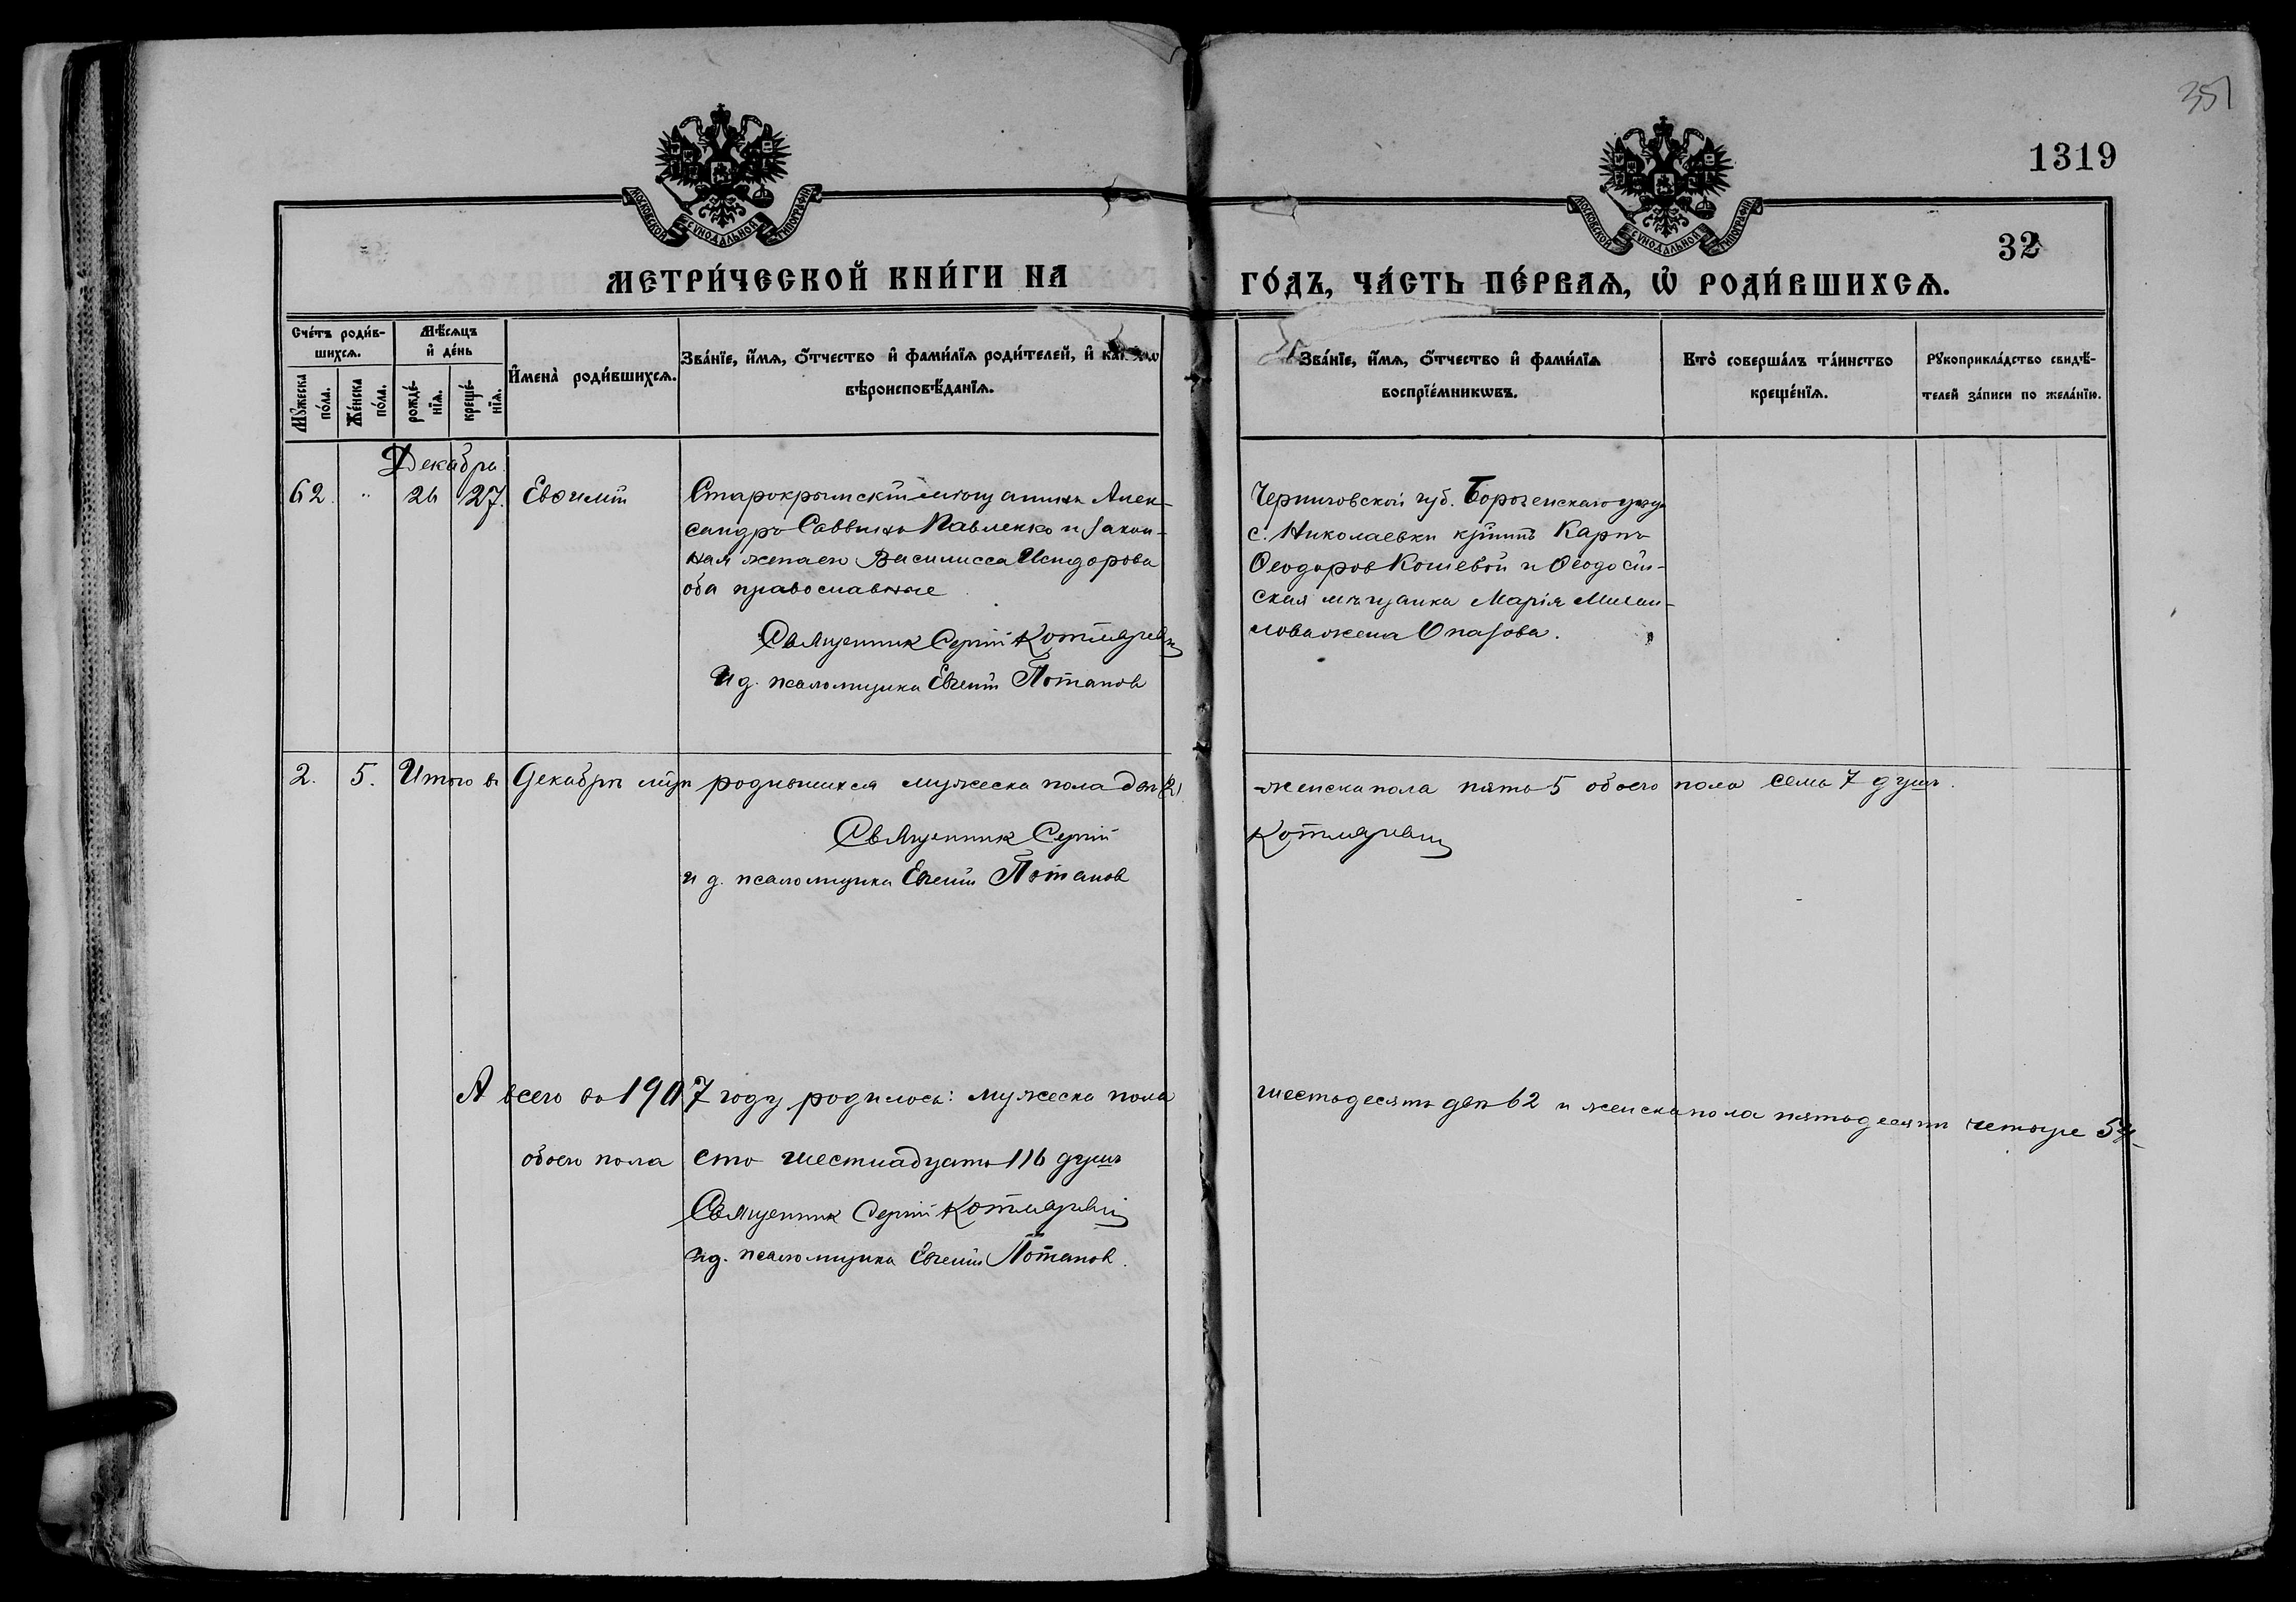 351
1319
32
МОСКОВСКОЙ СУНОДАЛЬНОЙ ТИПОГРАФІИ
МОСКОВСКОЙ СУНОДАЛЬНОЙ ТИПОГРАФІИ
МЕТРИ́ЧЕСКОЙ КНИ́ГИ НА
ГО́ДЪ, ЧА́СТЬ ПЕ́РВАѦ, Ѡ҆ РОДИ́ВШИХСѦ.
Сче́тъ роди́в-
шихсѧ.
Мѣ́сѧцъ
и҆ де́нь
И҆мена̀ роди́вшихсѧ.
Зва́нїе, и҆́мѧ, ѻ҆́тчество и҆ фами́лїѧ роди́телей, и҆
вѣроисповѣ́данїѧ.
Мꙋ́жеска
по́ла.
Же́нска
по́ла.
рожде́-
нїѧ.
креще́-
нїѧ.
Зва́нїе, и҆́мѧ, ѻ҆́тчество и҆ фами́лїѧ
воспрїе́мникѡвъ.
Кто̀ соверша́лъ та́инство
креще́нїѧ.
Рꙋкоприкла́дство свидѣ́-
телей за́писи по жела́нїю.
Декабрь
62. " 26 27. Евѳимій
Старокрымскій мѣщанинъ Алек-
сандръ Саввинъ Павленко и закон-
ная жена его Василисса Исидорова
оба православные
Священник Сергій Котляревъ
И д. псаломщика Евгеній Потапов
Черниговской губ. Борзенскаго уезда
с. Николаевки кр͞нинъ Карпъ
Ѳеодоров Кошевой и Ѳеодосій-
ская мѣщанка Марія Михаи-
лова жена Опазова.
2. 5. Итого въ Декабрѣ мцѣ родившихся мужеска пола два (2)
женска пола пять 5 обоего пола семь 7 душъ.
Священник Сергій
Котляревъ
и д. псаломщика Евгеній Потапов
А всего въ 1907 году родилось: мужеска пола
шестьдесятъ два 62 и женска пола пятьдесятъ четыре 54
обоего пола сто шестнадцать 116 душъ
Священник Сергій Котляревъ
и д. псаломщика Евгеній Потапов.